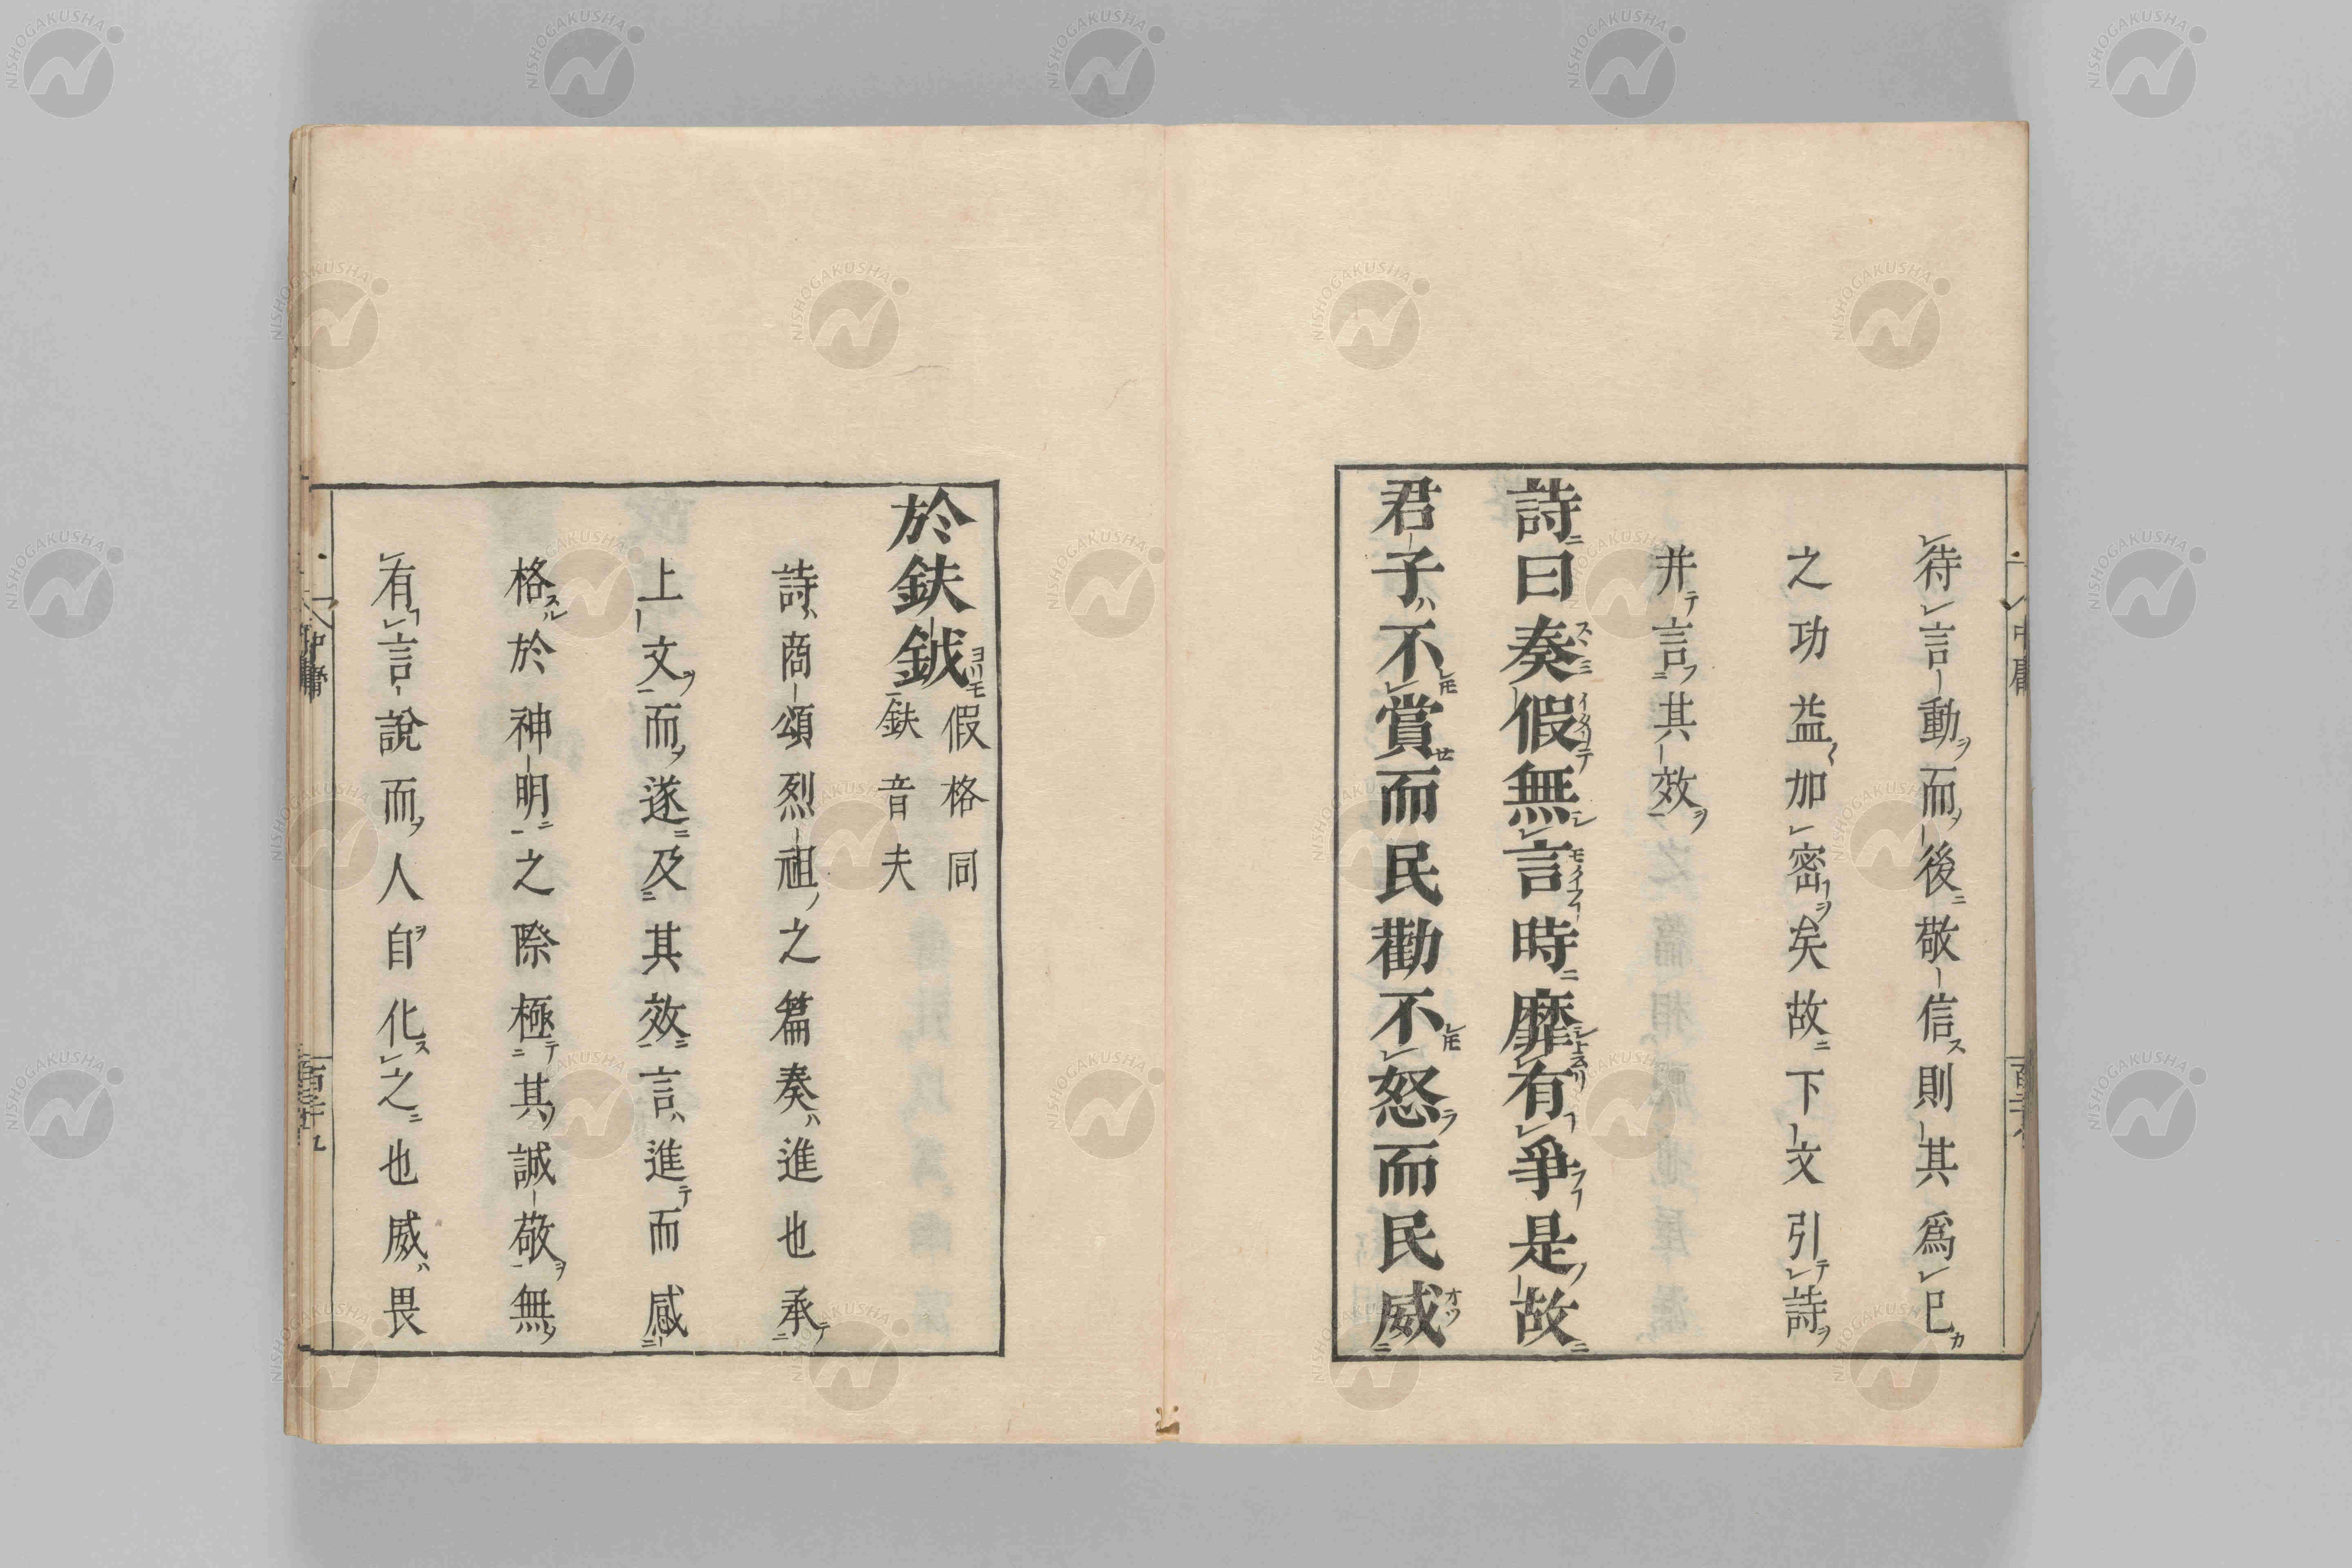 待言動而後敬信則其爲已
之功益加密矣故下文引詩
并言其效
詩曰奏假無言時靡有爭是故
君子不賞而民勸不怒而民威
於鈇鉞
假格同
鈇音夫
詩商頌烈祖之篇奏進也承
上文而遂及其效言進而感
格於神明之際極其誠敬無
有言說而人自化之也威畏
中庸
NISHOGAKUSHA